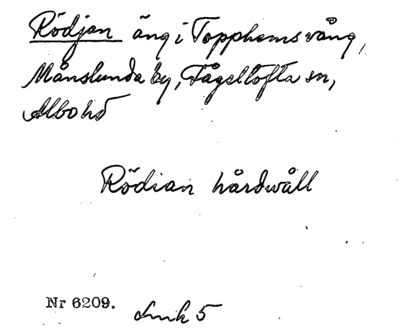 Rödjan äng i Topphemsvång,
Månslunda by, Fågeltofta sn,
Albo hd
Rödian hårdwåll
Nr 6209. Lmk 5